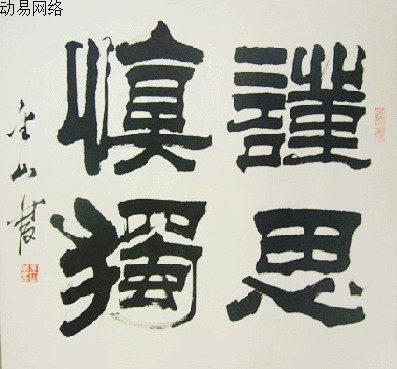 动易网络
謹思
慎獨